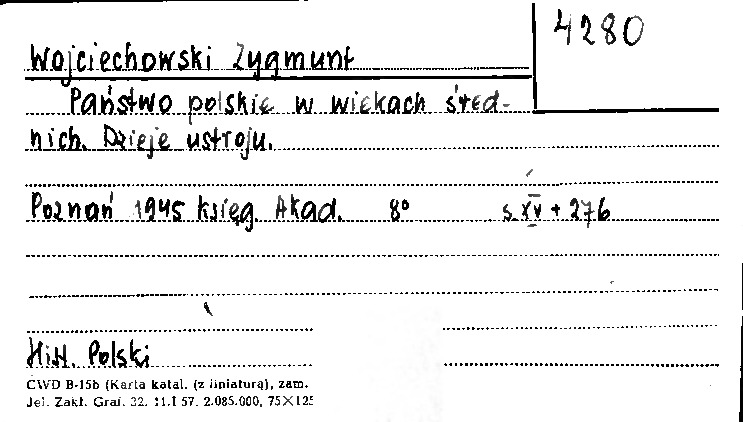 4280
Wojciechowski Zygmunt
Państwo polskie w wiekach śred-
nich. Dzieje ustroju.
Poznań 1945 Księg. Akad. 8° s. XV + 276
Hist. Polski
CWD B-15b (Karta katal. (z liniaturą), zam.
Jel. Zakł. Graf. 32. 11.I 57. 2.085.000, 75×125